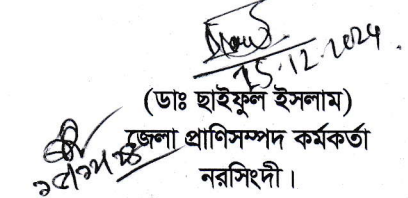 15.12.2024.
(ডাঃ ছাইফুল ইসলাম)
জেলা প্রাণিসম্পদ কর্মকর্তা
নরসিংদী।